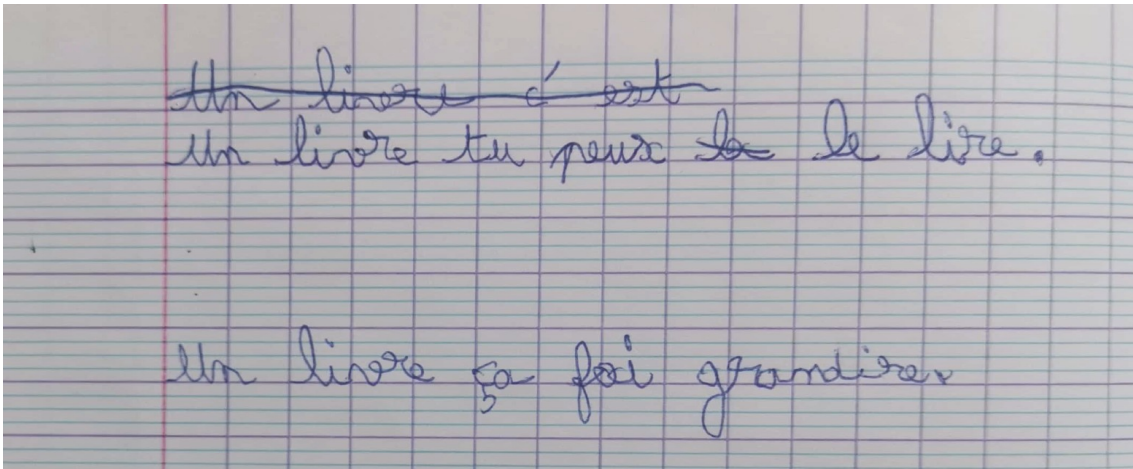 Un livre c'est
Un livre tu peux la le lire.
Un livre ça fai grandire.